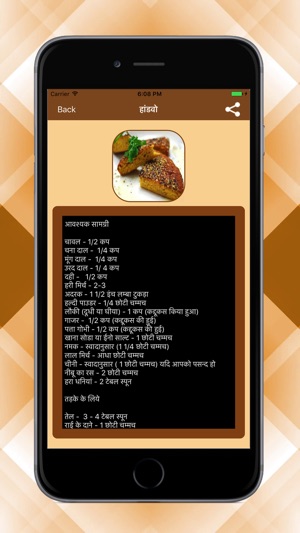 Carrier 6:08 PM
Back हांडवो
आवश्यक सामग्री
चावल - 1/2 कप
चना दाल - 1/4 कप
मूंग दाल - 1/4 कप
उरद दाल - 1/4 कप
दही - 1/2 कप
हरी मिर्च - 2-3
अदरक - 1 1/2 इंच लम्बा टुकड़ा
हल्दी पाउडर - 1/4 छोटी चम्मच
लौकी (दूधी या घीया) - 1 कप (कद्दूकस किया हुआ)
गाजर - 1/2 कप (कद्दूकस की हुई)
पत्ता गोभी - 1/2 कप (कद्दूकस की हुई)
खाना सोडा या ईनो साल्ट - 1 छोटी चम्मच
नमक - स्वादानुसार (1 1/4 छोटी चम्मच)
लाल मिर्च - आधा छोटी चम्मच
चीनी - स्वादानुसार ( 1 छोटी चम्मच) यदि आपको पसन्द हो
नीबू का रस - 2 छोटी चम्मच
हरा धनियां - 2 टेबल स्पून
तड़के के लिये
तेल - 3 - 4 टेबल स्पून
राई के दाने - 1 छोटी चम्मच